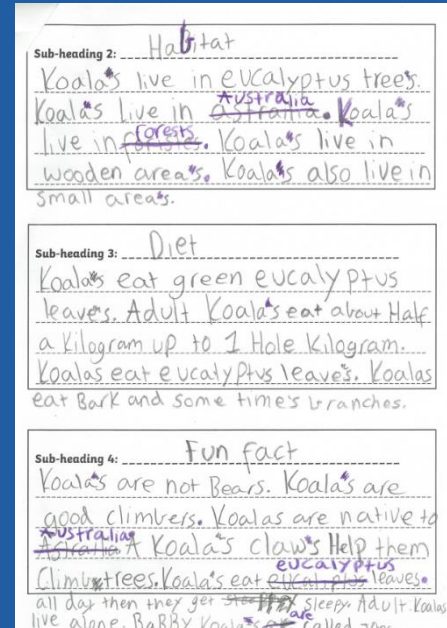 Sub-heading 2: Habitat
Koala's live in eucalyptus trees.
Koala's live in Australia. Koala's
live in forests. Koala's live in
wooden area's. Koala's also live in
small area's.
Sub-heading 3: Diet
Koala's eat green eucalyptus
leaves. Adult Koala's eat about Half
a kilogram up to 1 Hole kilogram.
Koalas eat eucalyptus leave's. Koalas
eat Bark and some time's branches.
Sub-heading 4: Fun fact
Koala's are not Bears. Koala's are
good climbers. Koalas are native to
Australia A Koala's claw's Help them
Climb trees. Koala's eat eucalyptus leaves.
all day then they get sleepy. Adult Koalas
live alone. BaBBY Koala's are called Joey